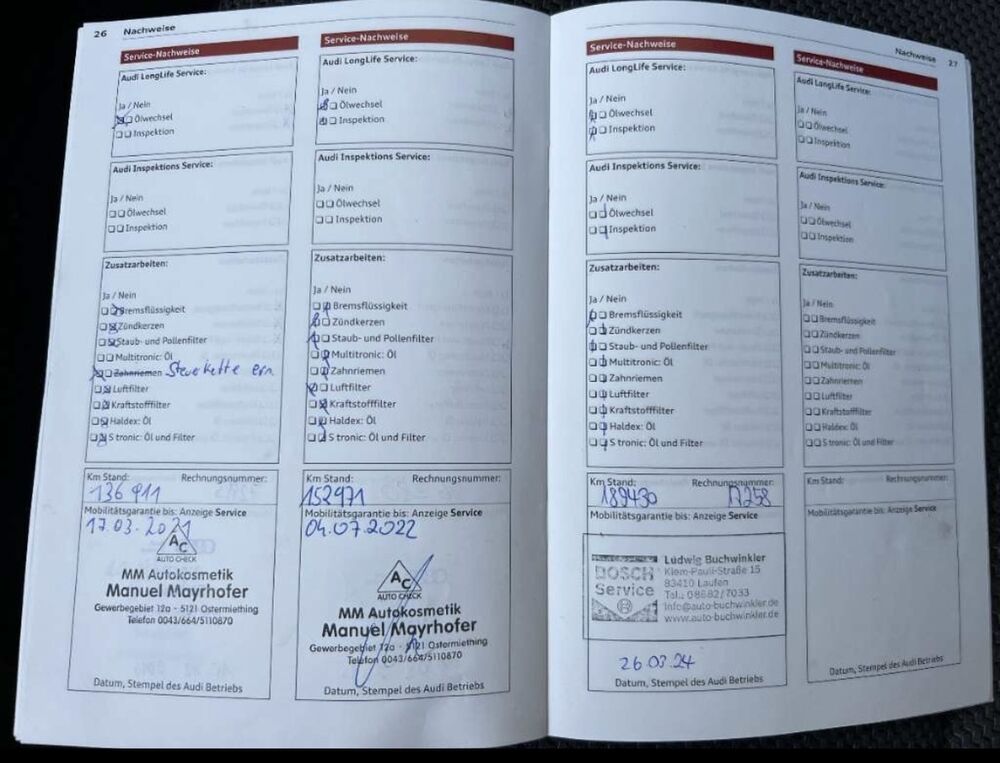 26 Nachweise
Service-Nachweise
Audi LongLife Service:
Ja / Nein
Ölwechsel
Inspektion
Audi Inspektions Service:
Ja / Nein
Ölwechsel
Inspektion
Zusatzarbeiten:
Ja / Nein
Bremsflüssigkeit
Zündkerzen
Staub- und Pollenfilter
Multitronic: Öl
Zahnriemen Steuerkette ern
Luftfilter
Kraftstofffilter
Haldex: Öl
S tronic: Öl und Filter
Km Stand: Rechnungsnummer:
136 911
Mobilitätsgarantie bis: Anzeige Service
17.03.2021
AC
AUTO CHECK
MM Autokosmetik
Manuel Mayrhofer
Gewerbegebiet 12a - 5121 Ostermiething
Telefon 0043/664/5110870
Datum, Stempel des Audi Betriebs
Service-Nachweise
Audi LongLife Service:
Ja / Nein
Ölwechsel
Inspektion
Audi Inspektions Service:
Ja / Nein
Ölwechsel
Inspektion
Zusatzarbeiten:
Ja / Nein
Bremsflüssigkeit
Zündkerzen
Staub- und Pollenfilter
Multitronic: Öl
Zahnriemen
Luftfilter
Kraftstofffilter
Haldex: Öl
S tronic: Öl und Filter
Km Stand: Rechnungsnummer:
152971
Mobilitätsgarantie bis: Anzeige Service
04.07.2022
AC
AUTO CHECK
MM Autokosmetik
Manuel Mayrhofer
Gewerbegebiet 12a - 5121 Ostermiething
Telefon 0043/664/5110870
Datum, Stempel des Audi Betriebs
Nachweise 27
Service-Nachweise
Audi LongLife Service:
Ja / Nein
Ölwechsel
Inspektion
Audi Inspektions Service:
Ja / Nein
Ölwechsel
Inspektion
Zusatzarbeiten:
Ja / Nein
Bremsflüssigkeit
Zündkerzen
Staub- und Pollenfilter
Multitronic: Öl
Zahnriemen
Luftfilter
Kraftstofffilter
Haldex: Öl
S tronic: Öl und Filter
Km Stand: Rechnungsnummer:
189430
Mobilitätsgarantie bis: Anzeige Service
BOSCH
Service
Ludwig Buchwinkler
Klem-Pauli-Straße 15
83410 Laufen
Tel.: 08682/7033
info@auto-buchwinkler.de
www.auto-buchwinkler.de
26.03.24
Datum, Stempel des Audi Betriebs
Service-Nachweise
Audi LongLife Service:
Ja / Nein
Ölwechsel
Inspektion
Audi Inspektions Service:
Ja / Nein
Ölwechsel
Inspektion
Zusatzarbeiten:
Ja / Nein
Bremsflüssigkeit
Zündkerzen
Staub- und Pollenfilter
Multitronic: Öl
Zahnriemen
Luftfilter
Kraftstofffilter
Haldex: Öl
S tronic: Öl und Filter
Km Stand: Rechnungsnummer:
Mobilitätsgarantie bis: Anzeige Service
Datum, Stempel des Audi Betriebs